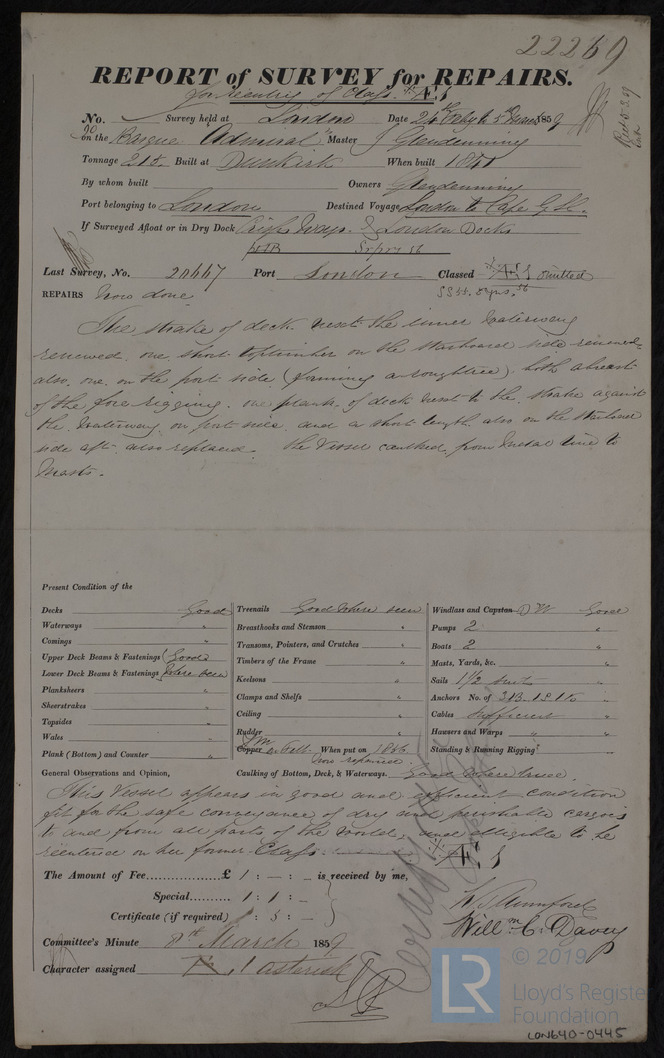 22269
REPORT of SURVEY for REPAIRS.
for reentry of Class
No. Survey held at London Date 24 Feby to 5th 1859
on the Barque Admiral Master J Glendenning
Tonnage 218 Built at Dunkirk When built 1841
By whom built Owners Glendenning
Port belonging to London Destined Voyage London to Cape G. H.
If Surveyed Afloat or in Dry Dock & London Docks
Last Survey, No. 20667 Port London Classed omitted
REPAIRS Now done
The strake of deck next the inner Waterway
renewed, one short toptimber on the starboard side renewed
also, one, on the port side, both abreast
of the fore rigging. one plank of deck next to the strake against
the Waterway on port side, and a short length also on the starboard
side aft also replaced. the Vessel caulked from Metal line to
Present Condition of the
Decks Good
Waterways "
Comings "
Upper Deck Beams & Fastenings Good
Lower Deck Beams & Fastenings where seen
Planksheers "
Sheerstrakes "
Topsides "
Wales "
Plank (Bottom) and Counter "
Treenails Good where seen
Breasthooks and Stemson "
Transoms, Pointers, and Crutches "
Timbers of the Frame "
Keelsons "
Clamps and Shelfs "
Ceiling "
Rudder "
Copper When put on
now repaired
Caulking of Bottom, Deck, & Waterways. Good where
Windlass and Capstan Good
Pumps 2 "
Boats 2 "
Masts, Yards, &c. "
Sails 1½ suits "
Anchors No. of 3B. 1S. 1K "
Cables sufficient "
Hawsers and Warps " "
Standing & Running Rigging "
General Observations and Opinion,
This Vessel appears in good and efficient condition
fit for the safe conveyance of dry and perishable cargoes
to and from all parts of the world, and elligible to be
reentered on her former Class
The Amount of Fee £ 1 : - : - is received by me,
Special 1 : 1 : -
Certificate (if required) : 5 : -
Willm. C. Davey
Committee's Minute 8th March 1859
Character assigned asterisk
© 2019
LR
Lloyd's Register
Foundation
LON640-0445